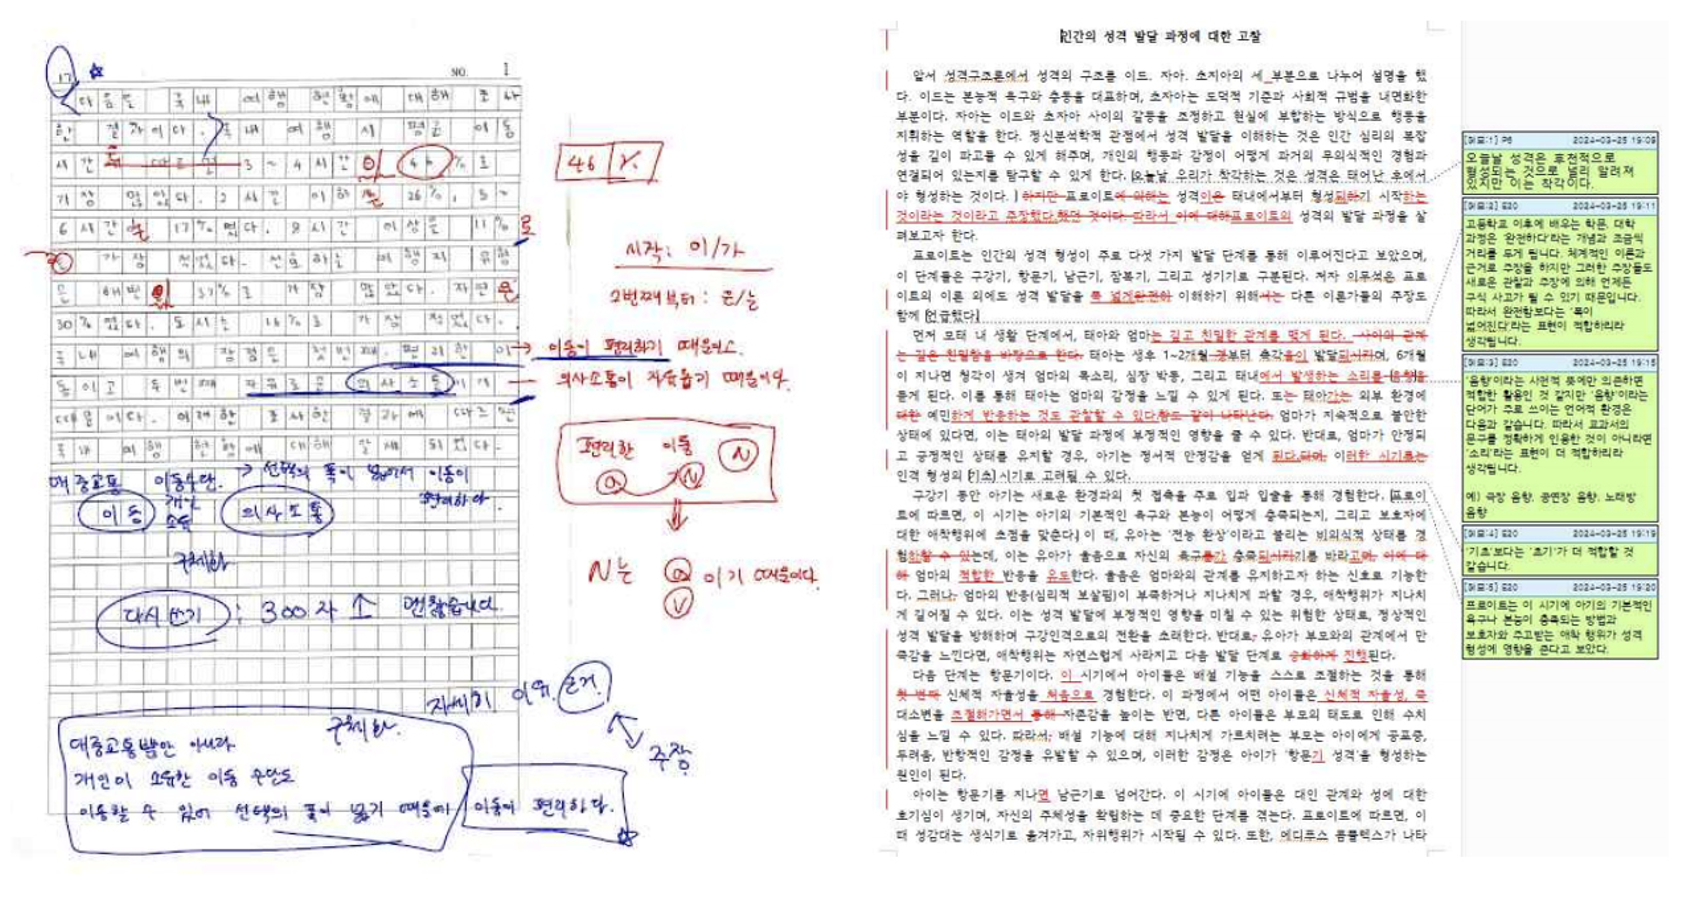 17
NO. 1
다음은 국내 여행 현황에 대해 조사
한 결과이다. 국내 여행 시 평균 이동
시간 3~4시간이 46%로
가장 많았다. 2시간 이하는 26%, 5~
6시간은 17%였다. 8시간 이상은 11%로
가장 적었다. 선호하는 여행지 유형
은 해변이 37%로 가장 많았다. 자연은
30%였다. 도시는 16%로 가장 적었다.
국내 여행의 장점은 첫번째, 편리한 이
동이고 두번째 자유로운 의사소통이기
때문이다. 이러한 조사한 결과에 따르면
국내 여행 현황에 대해 알게 되었다.
46 %
시작: 이/가
2번째부터: 은/는
이동이 편리하기 때문이고.
의사소통이 자유롭기 때문이다.
편리한 이동 N
a N
N는 a 이기 때문이다.
V
대중교통 이동수단. → 선택의 폭이 넓어서 이동이
편리하다.
이동 개인 소유 의사소통
구체화
다시 쓰기 : 300자 ↑ 괜찮습니다.
자세히 이유, 근거.
구체화.
주장
대중교통뿐만 아니라
개인이 소유한 이동 수단도
이용할 수 있어 선택의 폭이 넓기 때문에 이동이 편리하다.
인간의 성격 발달 과정에 대한 고찰
앞서 성격구조론에서 성격의 구조를 이드, 자아, 초자아의 세 부분으로 나누어 설명을 했
다. 이드는 본능적 욕구와 충동을 대표하며, 초자아는 도덕적 기준과 사회적 규범을 내면화한
부분이다. 자아는 이드와 초자아 사이의 갈등을 조정하고 현실에 부합하는 방식으로 행동을
지휘하는 역할을 한다. 정신분석학적 관점에서 성격 발달을 이해하는 것은 인간 심리의 복잡
성을 깊이 파고들 수 있게 해주며, 개인의 행동과 감정이 어떻게 과거의 무의식적인 경험과
연결되어 있는지를 탐구할 수 있게 한다. 오늘날 우리가 착각하는 것은 성격은 태어난 후에서
야 형성하는 것이다. 하지만 프로이트에 의하는 성격이은 태내에서부터 형성되하기 시작하는
것이라는 것이라고 주장했다.했던 것이다. 따라서 이에 대해프로이트의 성격의 발달 과정을 살
펴보고자 한다.
프로이트는 인간의 성격 형성이 주로 다섯 가지 발달 단계를 통해 이루어진다고 보았으며,
이 단계들은 구강기, 항문기, 남근기, 잠복기, 그리고 성기기로 구분된다. 저자 이무석은 프로
이트의 이론 외에도 성격 발달을 폭 넓게완전히 이해하기 위해서는 다른 이론가들의 주장도
함께 언급했다.
먼저 모태 내 생활 단계에서, 태아와 엄마는 깊고 친밀한 관계를 맺게 된다. 사이의 관계
는 깊은 친밀함을 바탕으로 한다. 태아는 생후 1~2개월 경부터 촉각을이 발달되시키며, 6개월
이 지나면 청각이 생겨 엄마의 목소리, 심장 박동, 그리고 태내에서 발생하는 소리를 음향을
듣게 된다. 이를 통해 태아는 엄마의 감정을 느낄 수 있게 된다. 또는 태아가는 외부 환경에
대한 예민하게 반응하는 것도 관찰할 수 있다.함도 같이 나타난다. 엄마가 지속적으로 불안한
상태에 있다면, 이는 태아의 발달 과정에 부정적인 영향을 줄 수 있다. 반대로, 엄마가 안정되
고 긍정적인 상태를 유지할 경우, 아기는 정서적 안정감을 얻게 된다.되며, 이러한 시기를는
인격 형성의 기초 시기로 고려될 수 있다.
구강기 동안 아기는 새로운 환경과의 첫 접촉을 주로 입과 입술을 통해 경험한다. 프로이
트에 따르면, 이 시기는 아기의 기본적인 욕구와 본능이 어떻게 충족되는지, 그리고 보호자에
대한 애착행위에 초점을 맞춘다. 이 때, 유아는 '전능 환상'이라고 불리는 비의식적 상태를 경
험하할 수 있는데, 이는 유아가 울음으로 자신의 욕구를가 충족되시키기를 바라고며, 이에 대
해 엄마의 적합한 반응을 유도한다. 울음은 엄마와의 관계를 유지하고자 하는 신호로 기능한
다. 그러나, 엄마의 반응(심리적 보살핌)이 부족하거나 지나치게 과할 경우, 애착행위가 지나치
게 길어질 수 있다. 이는 성격 발달에 부정적인 영향을 미칠 수 있는 위험한 상태로, 정상적인
성격 발달을 방해하며 구강인격으로의 전환을 초래한다. 반대로, 유아가 부모와의 관계에서 만
족감을 느낀다면, 애착행위는 자연스럽게 사라지고 다음 발달 단계로 승화하게 진행된다.
다음 단계는 항문기이다. 이 시기에서 아이들은 배설 기능을 스스로 조절하는 것을 통해
첫 번째 신체적 자율성을 처음으로 경험한다. 이 과정에서 어떤 아이들은 신체적 자율성, 즉
대소변을 조절해가면서 통해 자존감을 높이는 반면, 다른 아이들은 부모의 태도로 인해 수치
심을 느낄 수 있다. 따라서, 배설 기능에 대해 지나치게 가르치려는 부모는 아이에게 공포증,
두려움, 반항적인 감정을 유발할 수 있으며, 이러한 감정은 아이가 '항문기 성격'을 형성하는
원인이 된다.
아이는 항문기를 지나면 남근기로 넘어간다. 이 시기에 아이들은 대인 관계와 성에 대한
호기심이 생기며, 자신의 주체성을 확립하는 데 중요한 단계를 겪는다. 프로이트에 따르면, 이
때 성감대는 생식기로 옮겨가고, 자위행위가 시작될 수 있다. 또한, 에디푸스 콤플렉스가 나타
[메모:1] P6 2024-03-25 19:09
오늘날 성격은 후천적으로
형성되는 것으로 널리 알려져
있지만 이는 착각이다.
[메모:2] E20 2024-03-25 19:11
고등학교 이후에 배우는 학문, 대학
과정은 '완전하다'라는 개념과 조금씩
거리를 두게 됩니다. 체계적인 이론과
근거로 주장을 하지만 그러한 주장들도
새로운 관찰과 주장에 의해 언제든
구식 사고가 될 수 있기 때문입니다.
따라서 완전함보다는 '폭이
넓어진다'라는 표현이 적합하리라
생각됩니다.
[메모:3] E20 2024-03-25 19:15
'음향'이라는 사전적 뜻에만 의존하면
적합한 활용인 것 같지만 '음향'이라는
단어가 주로 쓰이는 언어적 환경은
다음과 같습니다. 따라서 교과서의
문구를 정확하게 인용한 것이 아니라면
'소리'라는 표현이 더 적합하리라
생각됩니다.
예) 극장 음향, 공연장 음향, 노래방
음향
[메모:4] E20 2024-03-25 19:19
'기초'보다는 '초기'가 더 적합할 것
같습니다.
[메모:5] E20 2024-03-25 19:20
프로이트는 이 시기에 아기의 기본적인
욕구나 본능이 충족되는 방법과
보호자와 주고받는 애착 행위가 성격
형성에 영향을 준다고 보았다.